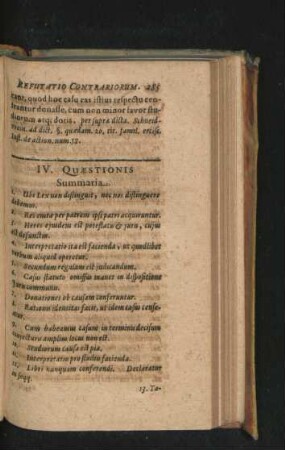 REFUTATIO CONTRARIORUM. 285
cant, quod hoc casu eas istius respectu cen-
seantur donasse, cum non minor favor stu-
diorum atq; dotis, per supra dicta. Schneid-
vvein. ad dict. §. quædam. 20. tit. famil. ercisc.
Inst. de action. num. 12.
IV. QUÆSTIONIS
Summaria.
1. Ubi Lex non distinguit, nec nos distinguere
debemus.
2. Res emta per patrem ipsi patri acquiruntur.
3. Heres ejusdem est potestatis & juris, cujus
est defunctus.
4. Interpretatio ita est facienda, ut quodlibet
verbum aliquid operetur.
5. Secundum regulam est judicandum.
6. Casus statuto omissus manet in dispositione
juris communis.
7. Donationes ob causam conferuntur.
8. Rationis identitas facit, ut idem casus cense-
atur.
9. Cum habemus casum in terminis decisum
conjectura amplius locus non est.
10. Studiorum causa est pia.
11. Interpretatio pro studiis facienda.
12. Libri nunquam conferendi. Declaratur
in seqq.
13. Ta-